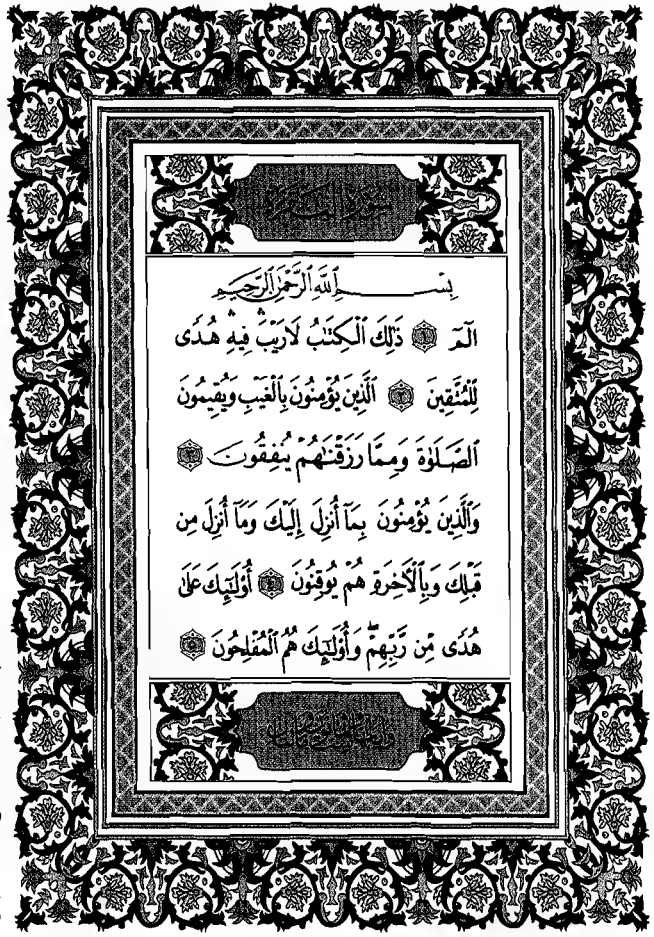 سورة البقرة
بِسْمِ ٱللَّهِ ٱلرَّحْمَٰنِ ٱلرَّحِيمِ
الٓمٓ ۝١ ذَٰلِكَ ٱلْكِتَٰبُ لَا رَيْبَ ۛ فِيهِ ۛ هُدًى
لِّلْمُتَّقِينَ ۝٢ ٱلَّذِينَ يُؤْمِنُونَ بِٱلْغَيْبِ وَيُقِيمُونَ
ٱلصَّلَوٰةَ وَمِمَّا رَزَقْنَٰهُمْ يُنفِقُونَ ۝٣
وَٱلَّذِينَ يُؤْمِنُونَ بِمَآ أُنزِلَ إِلَيْكَ وَمَآ أُنزِلَ مِن
قَبْلِكَ وَبِٱلْأَخِرَةِ هُمْ يُوقِنُونَ ۝٤ أُو۟لَٰٓئِكَ عَلَىٰ
هُدًى مِّن رَّبِّهِمْ ۖ وَأُو۟لَٰٓئِكَ هُمُ ٱلْمُفْلِحُونَ ۝٥